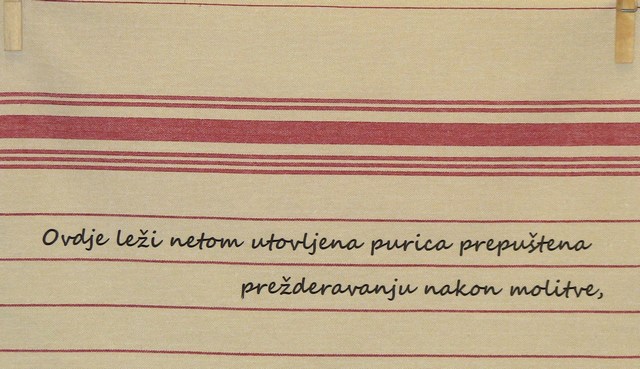 Ovdje leži netom utovljena purica prepuštena
prežderavanju nakon molitve,